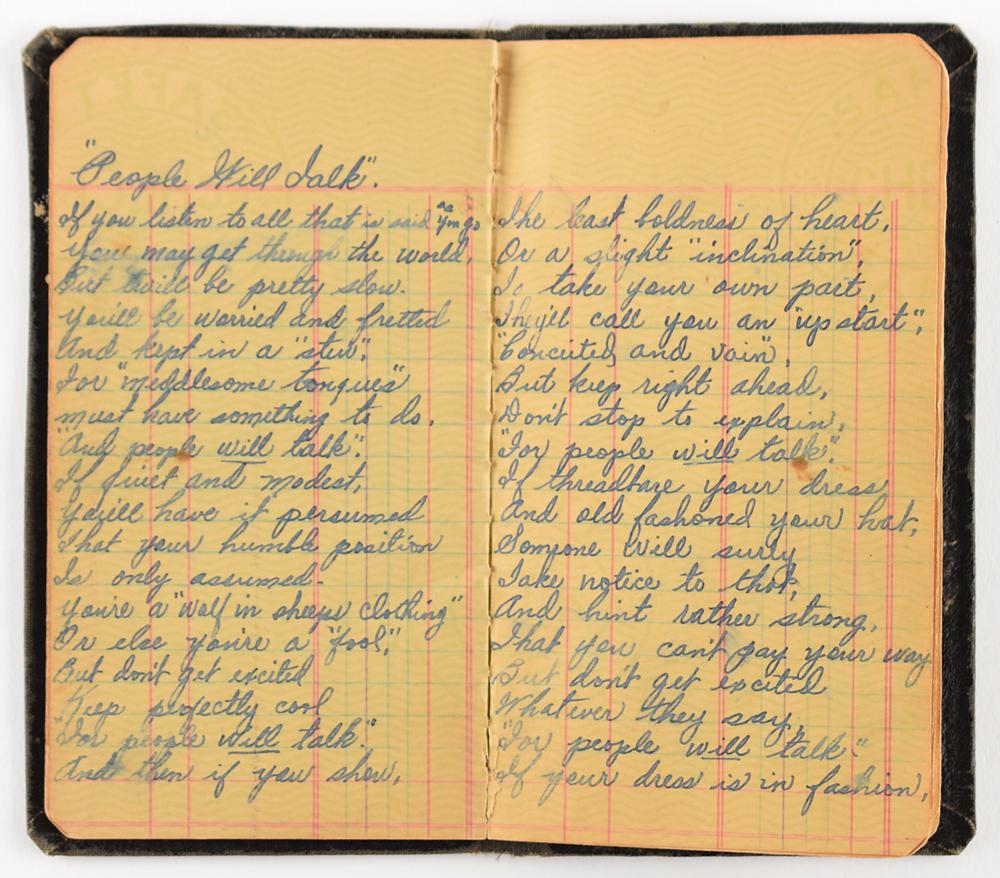 "People Will Talk".
If you listen to all that is said as you go
You may get through the world,
But twill be pretty slow.
You'll be worried and fretted
And kept in a "stew",
For "meddlesome tongues"
must have something to do.
"And people will talk".
If quiet and modest,
You'll have it persumed
That your humble position
Is only assumed-
You're a "wolf in sheeps clothing"
Or else you're a "fool",
But don't get excited
Keep perfectly cool
"For people will talk."
And then if you show,
The least boldness of heart,
Or a slight "inclination",
To take your own part,
They'll call you an "up start",
"Conceited, and vain",
But keep right ahead,
Don't stop to explain,
"For people will talk".
If threadbare your dress
And old fashoned your hat,
Someone will surly
Take notice to that,
And hint rather strong,
That you can't pay your way
But don't get excited
Whatever they say,
"For people will talk"
If your dress is in fashion,